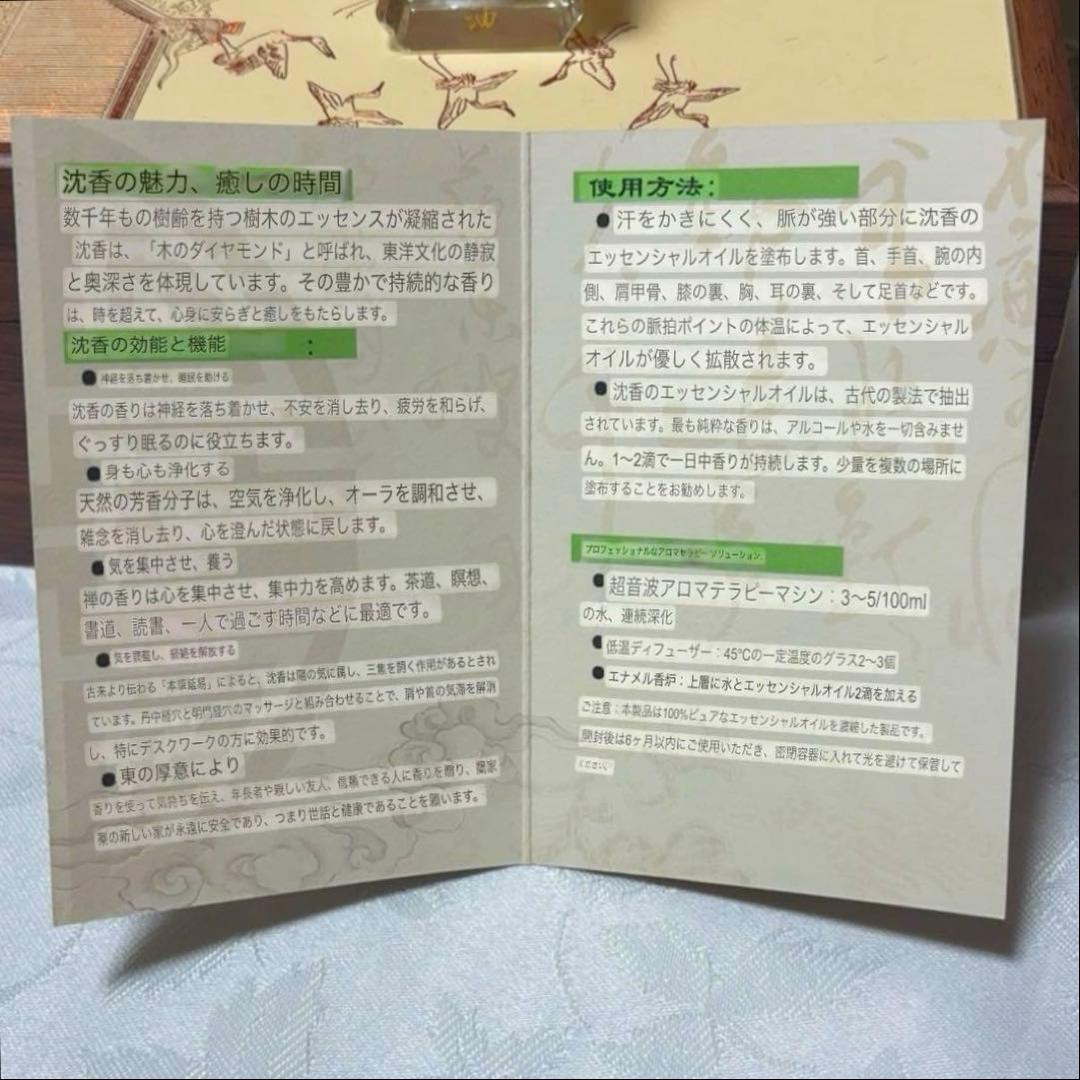 油
沈香の魅力、癒しの時間
数千年もの樹齢を持つ樹木のエッセンスが凝縮された
沈香は、「木のダイヤモンド」と呼ばれ、東洋文化の静寂
と奥深さを体現しています。その豊かで持続的な香り
は、時を超えて、心身に安らぎと癒しをもたらします。
沈香の効能と機能 :
●神経を落ち着かせ、睡眠を助ける
沈香の香りは神経を落ち着かせ、不安を消し去り、疲労を和らげ、
ぐっすり眠るのに役立ちます。
●身も心も浄化する
天然の芳香分子は、空気を浄化し、オーラを調和させ、
雑念を消し去り、心を澄んだ状態に戻します。
●気を集中させ、養う
禅の香りは心を集中させ、集中力を高めます。茶道、瞑想、
書道、読書、一人で過ごす時間などに最適です。
●気を調整し、経絡を解放する
古来より伝わる「本草延易」によると、沈香は陽の気に属し、三焦を開く作用があるとされ
ています。丹中経穴と明門経穴のマッサージと組み合わせることで、肩や首の気滞を解消
し、特にデスクワークの方に効果的です。
●東の厚意により
香りを使って気持ちを伝え、年長者や親しい友人、信頼できる人に香りを贈り、
薬の新しい家が永遠に安全であり、つまり世話と健康であることを願います。
使用方法:
●汗をかきにくく、脈が強い部分に沈香の
エッセンシャルオイルを塗布します。首、手首、腕の内
側、肩甲骨、膝の裏、胸、耳の裏、そして足首などです。
これらの脈拍ポイントの体温によって、エッセンシャル
オイルが優しく拡散されます。
●沈香のエッセンシャルオイルは、古代の製法で抽出
されています。最も純粋な香りは、アルコールや水を一切含みませ
ん。1〜2滴で一日中香りが持続します。少量を複数の場所に
塗布することをお勧めします。
プロフェッショナルなアロマセラピーソリューション.
●超音波アロマテラピーマシン：3〜5/100ml
の水、連続深化
●低温ディフューザー：45°Cの一定温度のグラス2〜3個
●エナメル香炉：上層に水とエッセンシャルオイル2滴を加える
ご注意：本製品は100%ピュアなエッセンシャルオイルを濃縮した製品です。
開封後は6ヶ月以内にご使用いただき、密閉容器に入れて光を避けて保管して
ください。